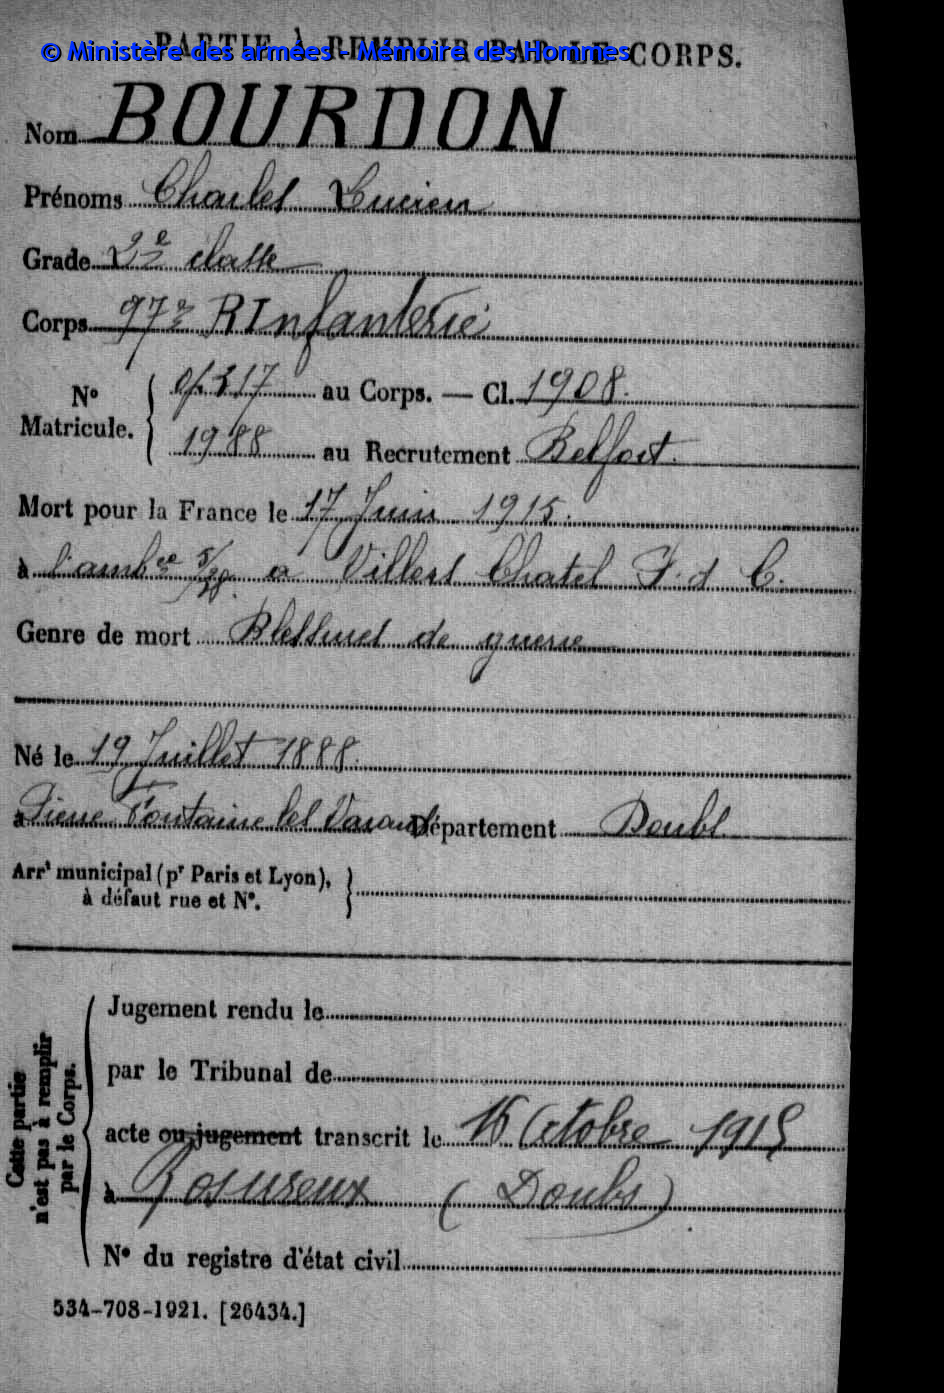 PARTIE À REMPLIR PAR LE CORPS.
© Ministère des armées - Mémoire des Hommes
Nom BOURDON
Prénoms Charles Lucien
Grade 2e classe
Corps 97e R Infanterie
No Matricule. 017 au Corps. — Cl. 1908.
1988 au Recrutement Belfort.
Mort pour la France le 17 Juin 1915.
à l'ambce 5/38. a Villers Chatel P. d C.
Genre de mort Blessures de guerre
Né le 19 Juillet 1888.
à Pierre Fontaine les Varans Département Doubs
Arrt municipal (pr Paris et Lyon),
à défaut rue et No.
Cette partie
n'est pas à remplir
par le Corps.
Jugement rendu le
par le Tribunal de
acte ou jugement transcrit le 16 Octobre 1915
à Rosureux (Doubs).
No du registre d'état civil
534-708-1921. [26434.]